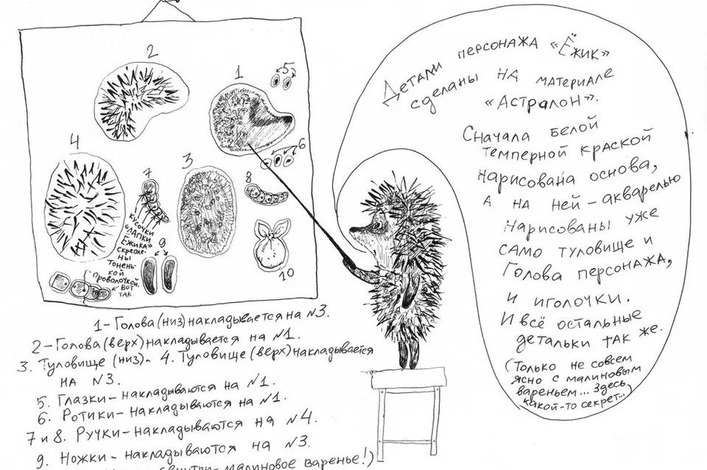 2
1
5
6
4
7
3
8
9
10
Кусочки
лапки
Ёжика
скрепле-
ны
тонень-
кой
проволочкой.
Вот
так
Детали персонажа «Ёжик»
сделаны на материале
«Астралон».
Сначала белой
темперной краской
нарисована основа,
а на ней – акварелью
нарисованы уже
само туловище и
голова персонажа,
и иголочки.
И всё остальные
детальки так же.
(Только не совсем
ясно с малиновым
вареньем... Здесь
какой-то секрет...)
1 – Голова (низ) накладывается на №3.
2 – Голова (верх) накладывается на №1.
3. Туловище (низ) – 4. Туловище (верх) накладывается
на №3.
5. Глазки – накладываются на №1.
6. Ротики – накладываются на №1.
7 и 8. Ручки – накладываются на №4.
9. Ножки – накладываются на №3.
малиновое варенье!)